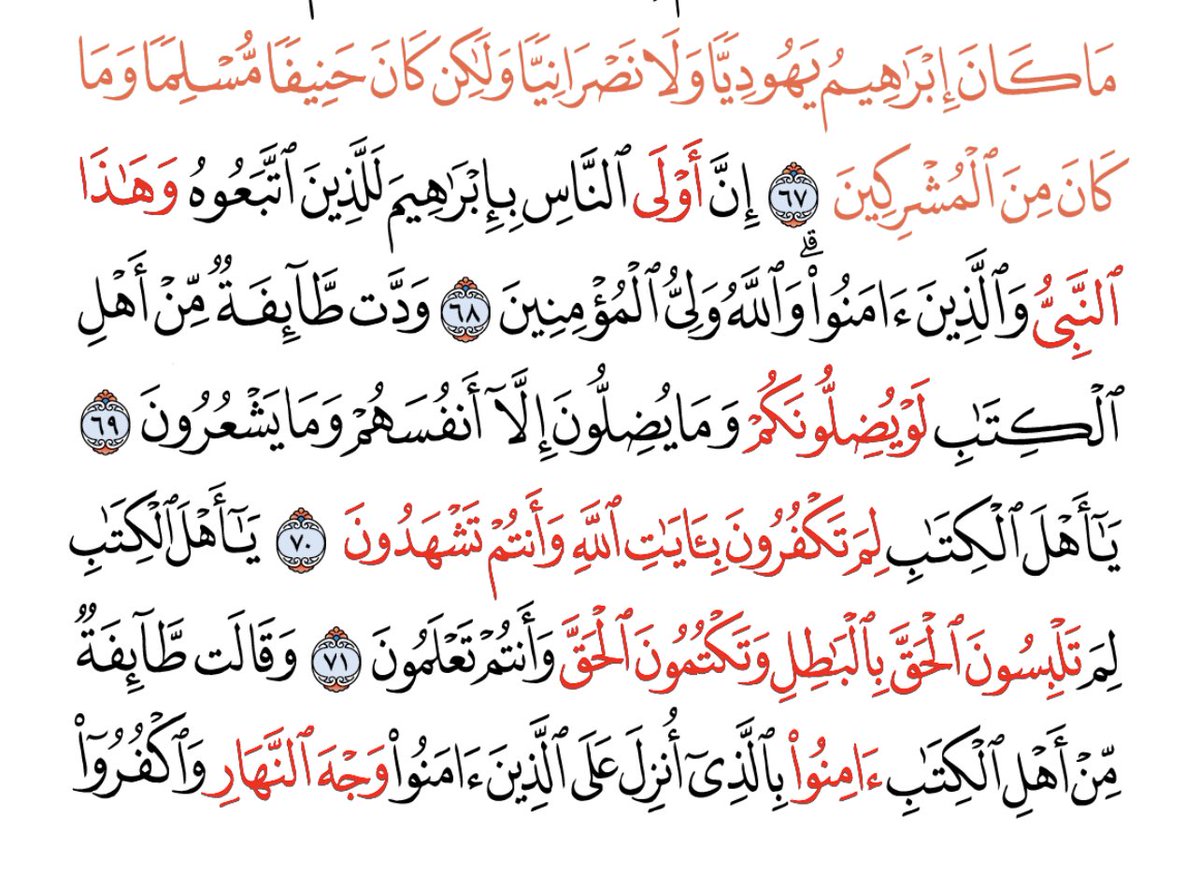 مَا كَانَ إِبْرَٰهِيمُ يَهُودِيًّا وَلَا نَصْرَانِيًّا وَلَٰكِن كَانَ حَنِيفًا مُّسْلِمًا وَمَا
كَانَ مِنَ ٱلْمُشْرِكِينَ ٦٧ إِنَّ أَوْلَى ٱلنَّاسِ بِإِبْرَٰهِيمَ لَلَّذِينَ ٱتَّبَعُوهُ وَهَٰذَا
ٱلنَّبِىُّ وَٱلَّذِينَ ءَامَنُوا۟ ۗ وَٱللَّهُ وَلِىُّ ٱلْمُؤْمِنِينَ ٦٨ وَدَّت طَّآئِفَةٌ مِّنْ أَهْلِ
ٱلْكِتَٰبِ لَوْ يُضِلُّونَكُمْ وَمَا يُضِلُّونَ إِلَّآ أَنفُسَهُمْ وَمَا يَشْعُرُونَ ٦٩
يَٰٓأَهْلَ ٱلْكِتَٰبِ لِمَ تَكْفُرُونَ بِـَٔايَٰتِ ٱللَّهِ وَأَنتُمْ تَشْهَدُونَ ٧٠ يَٰٓأَهْلَ ٱلْكِتَٰبِ
لِمَ تَلْبِسُونَ ٱلْحَقَّ بِٱلْبَٰطِلِ وَتَكْتُمُونَ ٱلْحَقَّ وَأَنتُمْ تَعْلَمُونَ ٧١ وَقَالَت طَّآئِفَةٌ
مِّنْ أَهْلِ ٱلْكِتَٰبِ ءَامِنُوا۟ بِٱلَّذِىٓ أُنزِلَ عَلَى ٱلَّذِينَ ءَامَنُوا۟ وَجْهَ ٱلنَّهَارِ وَٱكْفُرُوٓا۟